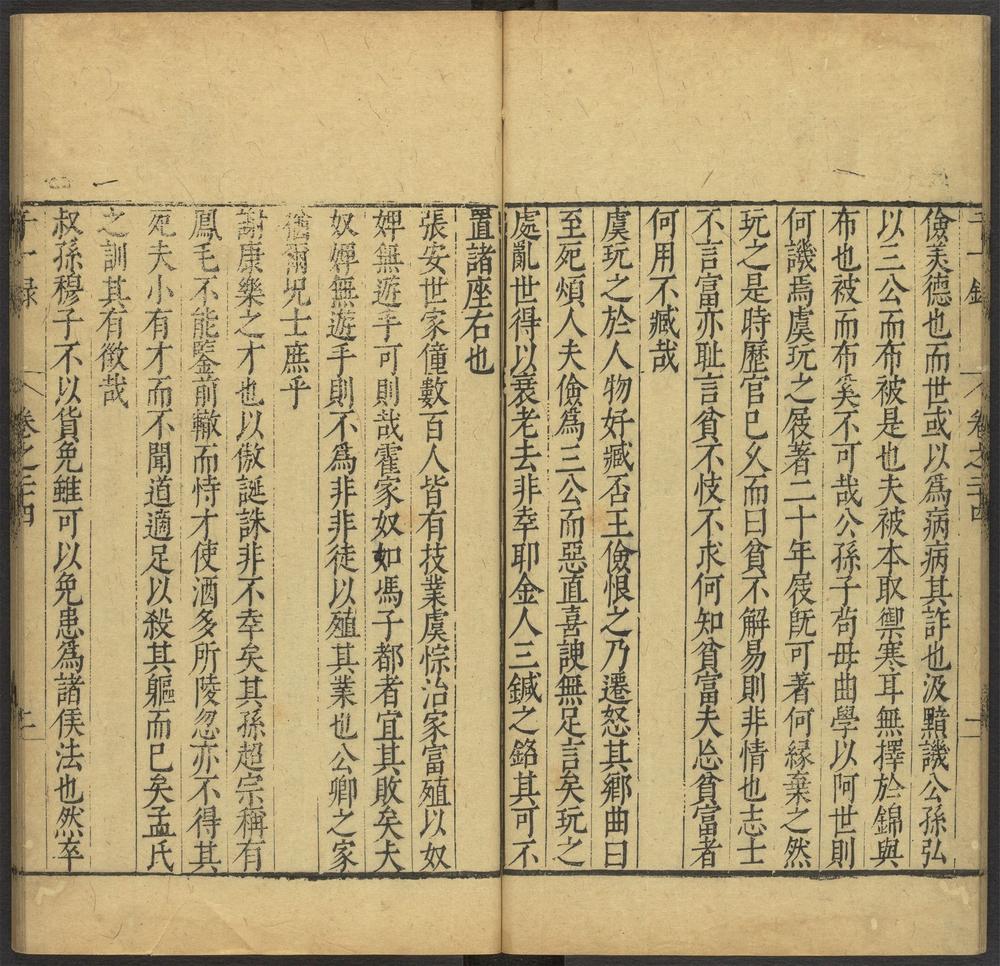 儉美德也而世或以爲病病其詐也汲黯譏公孫弘
以三公而布被是也夫被本取禦寒耳無擇於錦與
布也被而布奚不可哉公孫子苟毋曲學以阿世則
何譏焉虞玩之屐著二十年屐旣可著何緣棄之然
玩之是時歷官已乆而曰貧不解易則非情也志士
不言富亦耻言貧不忮不求何知貧富夫㤀貧富者
何用不臧哉
虞玩之於人物好臧否王儉恨之乃遷怒其鄕曲曰
至死煩人夫儉爲三公而惡直喜諛無足言矣玩之
處亂世得以衰老去非幸耶金人三鍼之銘其可不
置諸座右也
張安世家僮數百人皆有技業虞悰治家富殖以奴
婢無遊手可則哉霍家奴如馮子都者宜其敗矣夫
奴婢無遊手則不爲非非徒以殖其業也公卿之家
猶爾况士庶乎
謝康樂之才也以傲誕誅非不幸矣其孫超宗稱有
鳳毛不能鑒前轍而恃才使酒多所陵忽亦不得其
死夫小有才而不聞道適足以殺其軀而已矣孟氏
之訓其有徵哉
叔孫穆子不以貨免雖可以免患爲諸侯法也然卒
卷之二十四